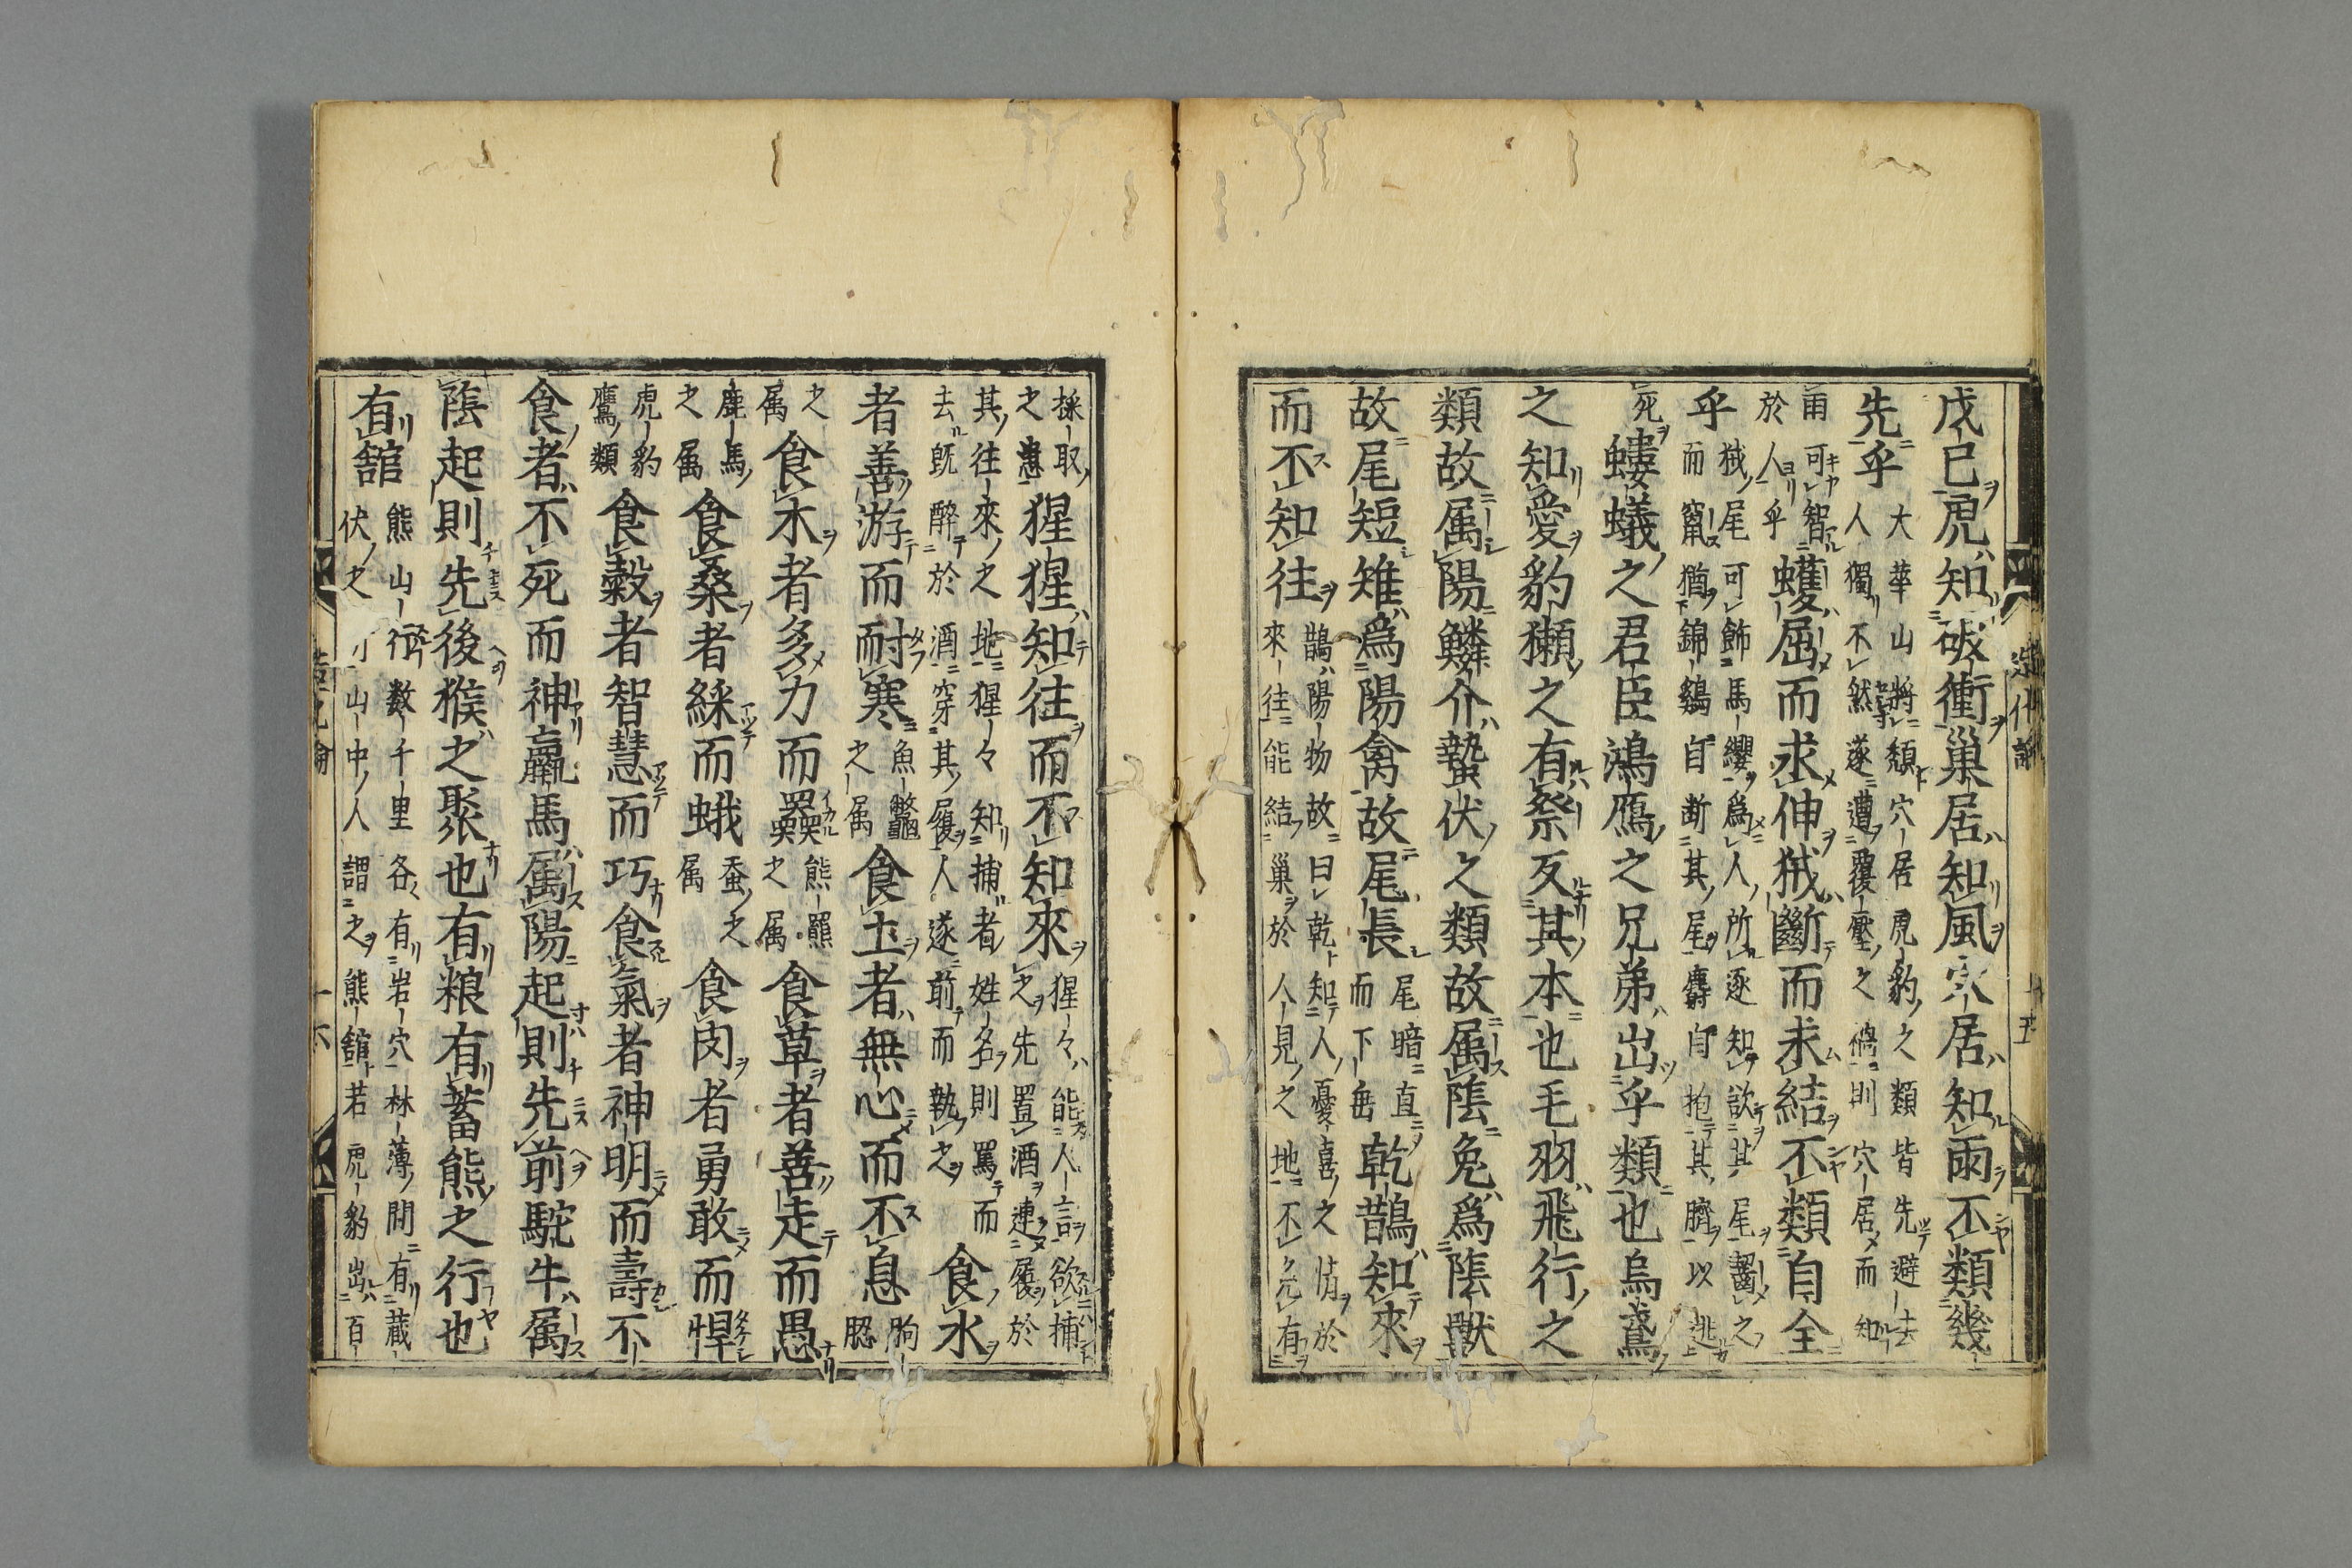 戊巳虎知破衝巢居知風穴居知雨不類幾
先乎大華山將頹穴居虎豹之類皆先避去
人獨不然遂遭覆壓之禍則穴居而知
雨可智
於人乎蠖屈而求伸狨斷而求結不類自全
乎狨尾可飾馬纓爲人所逐知欲其尾齧之
而竄猶錦鷄自斷其尾麝自抱其臍以逃
死螻蟻之君臣鴻鴈之兄弟出乎類也烏鳶
之知愛豹獺之有祭反其本也毛羽飛行之
類故属陽鱗介蟄伏之類故属陰兔爲陰獸
故尾短雉爲陽禽故尾長尾暗直
而下垂乾鵲知來
而不知往鵲陽物故曰乾知人憂喜之情於
來往能結巢於人見之地不免有
採取
之患猩猩知往而不知來猩々能人言欲捕
之先置酒連屨於
其往來之地猩々知捕者姓名則罵而
去既醉於酒穿其屨人遂前而執之食水
者善游而耐寒魚鼈
之属食土者無心而不息
之
属食木者多力而奰熊羆
之属食草者善走而愚
鹿馬
之属食桑者絲而蛾蚕之
属食肉者勇敢而悍
虎豹
鷹類食穀者智慧而巧食氣者神明而壽不
食者不死而神羸馬属陽起則先前駝牛属
陰起則先後猴之聚也有粮有蓄熊之行也
有舘熊山行數千里各々有岩穴林薄間有蔵
伏之山中人謂之熊舘若虎豹出百